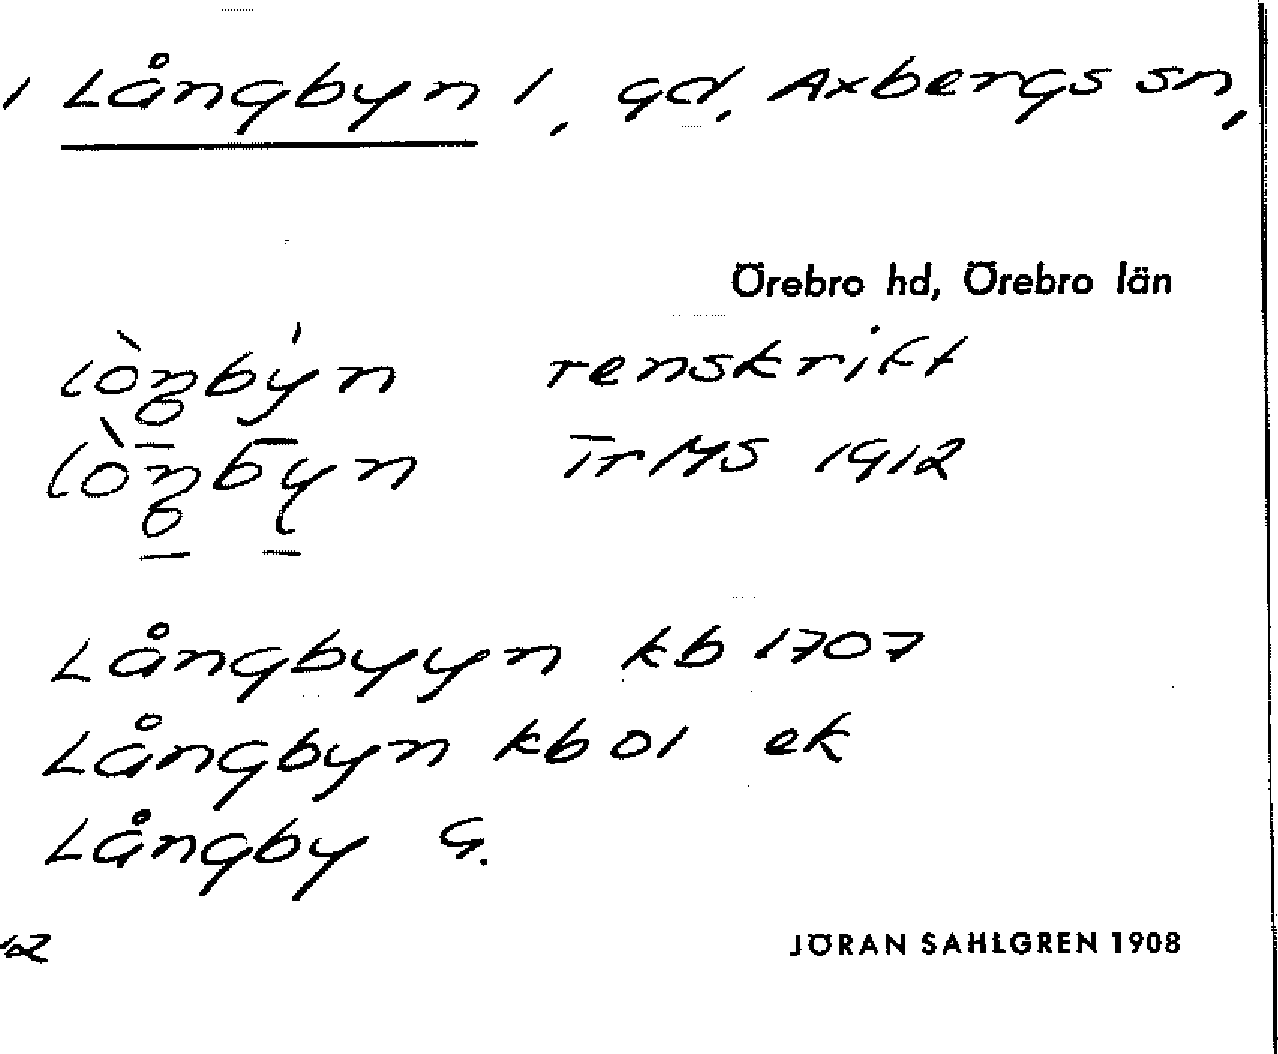 1 Långbyn 1, gd, Axbergs sn,
Örebro hd, Örebro län
lòŋbýn renskrift
lòŋbyn TrMS 1912
Långbyyn kb 1707
Långbyn kb 01 ek
Långby G.
12
JÖRAN SAHLGREN 1908